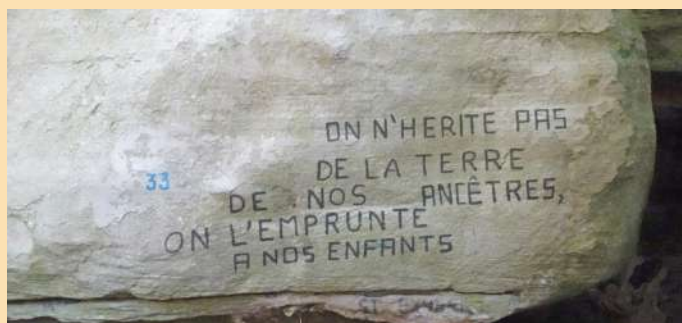 ON N'HERITE PAS
DE LA TERRE
33
DE NOS ANCÊTRES,
ON L'EMPRUNTE
A NOS ENFANTS